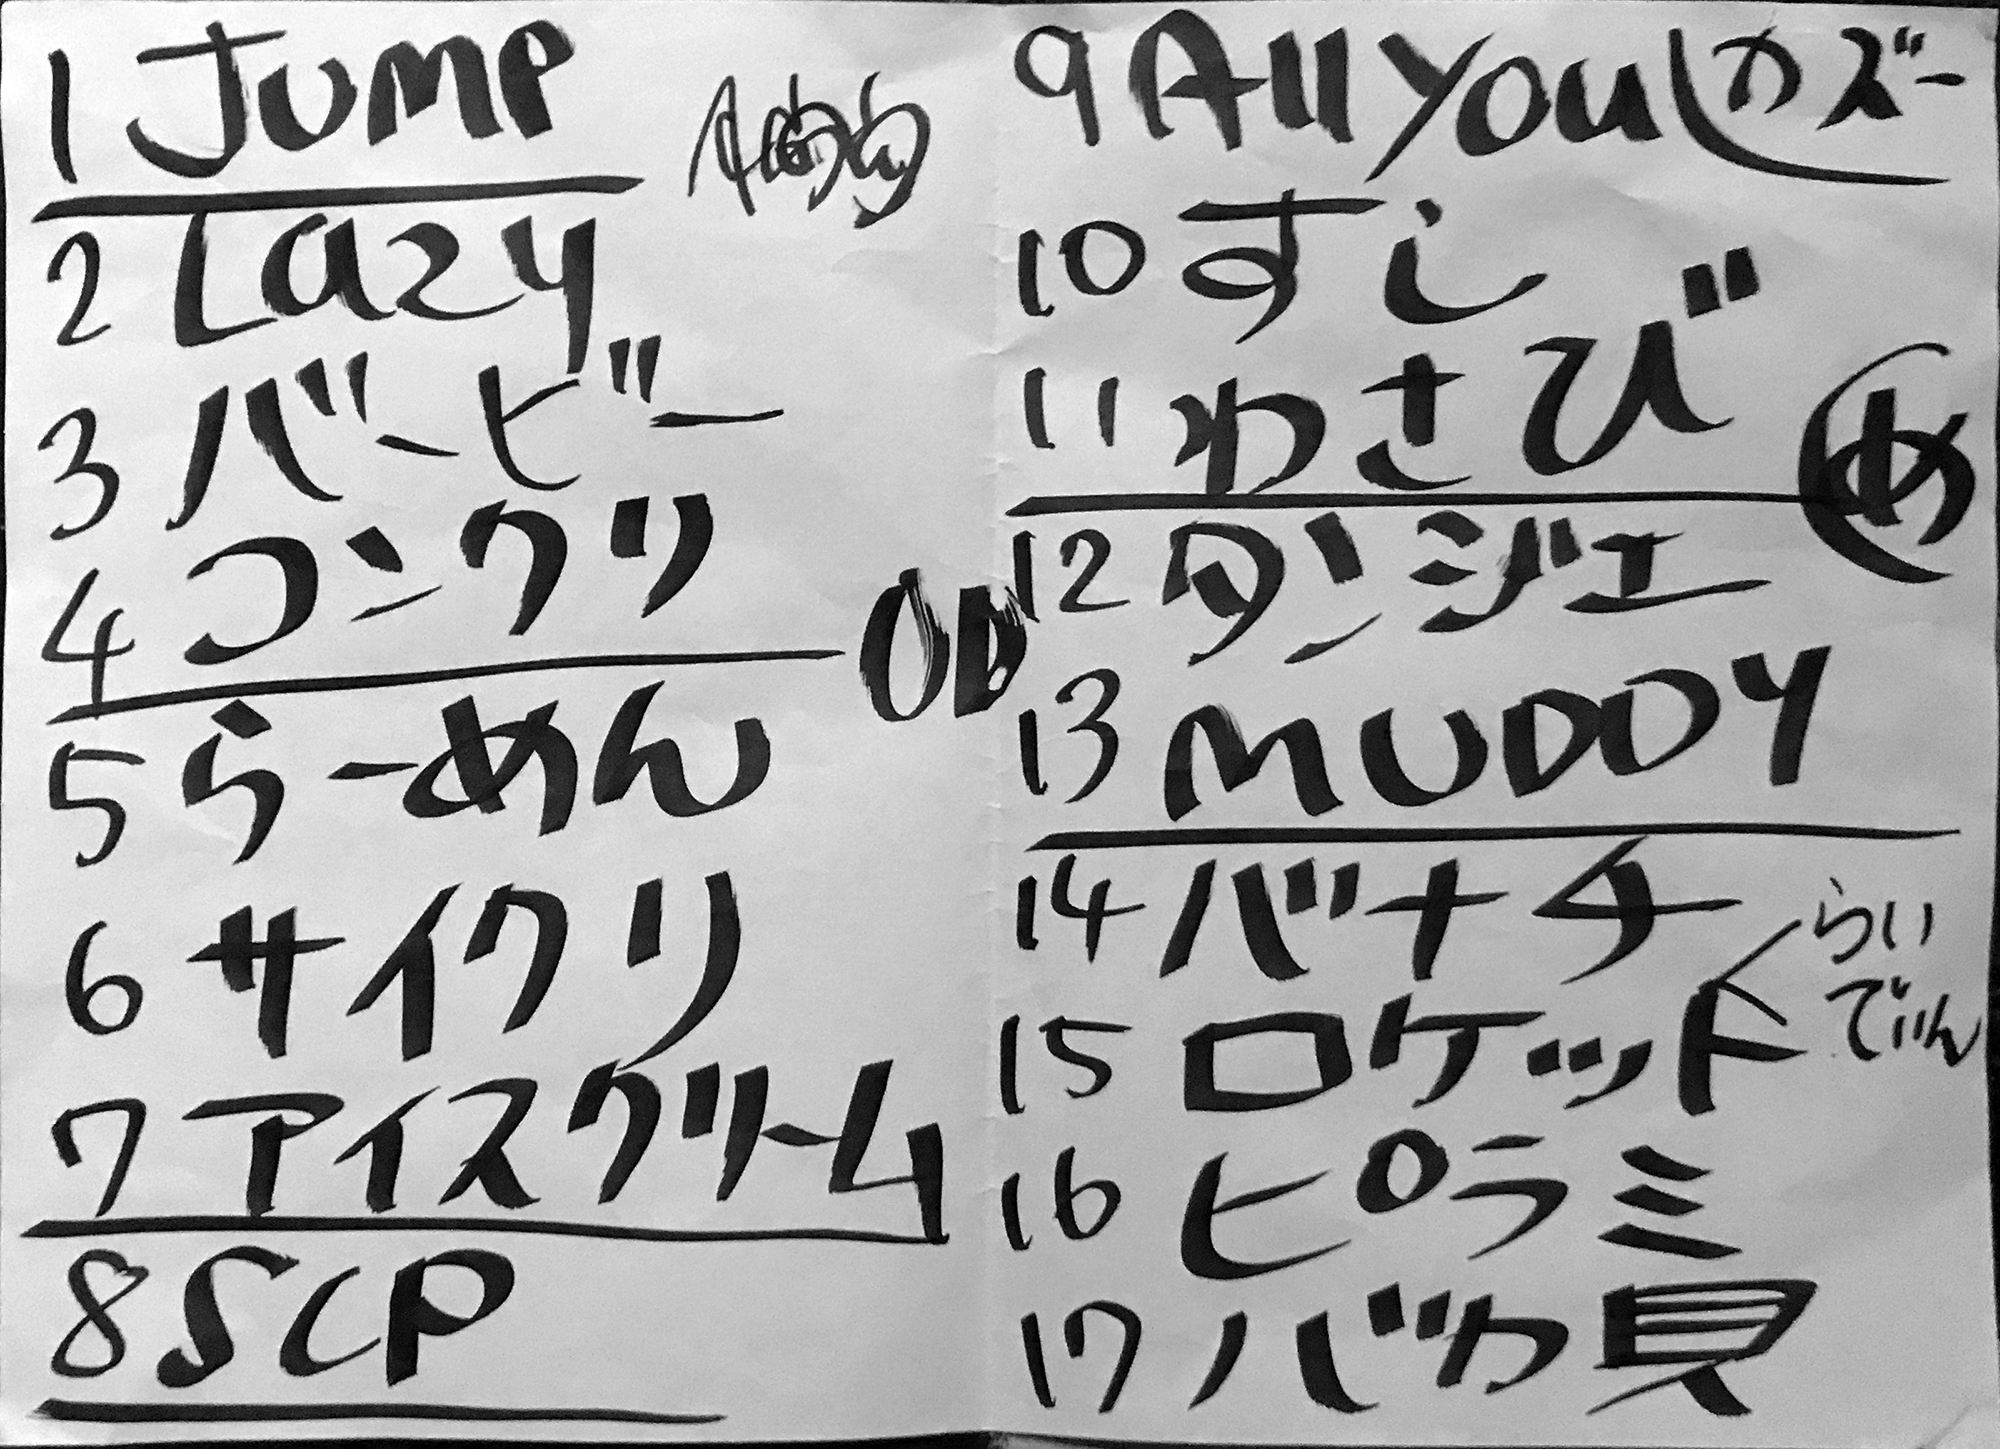 1 JUMP
2 Lazy
3 バービー
4 コンクリ
5 らーめん
6 サイクリ
7 アイスクリーム
8 SCP
9 All you カズー
10 すし
11 わさび
め
12 ダンジェ
13 MUDDY
14 バナナ
らい
でぃん
15 ロケット
16 ピラミ
17 バカ貝